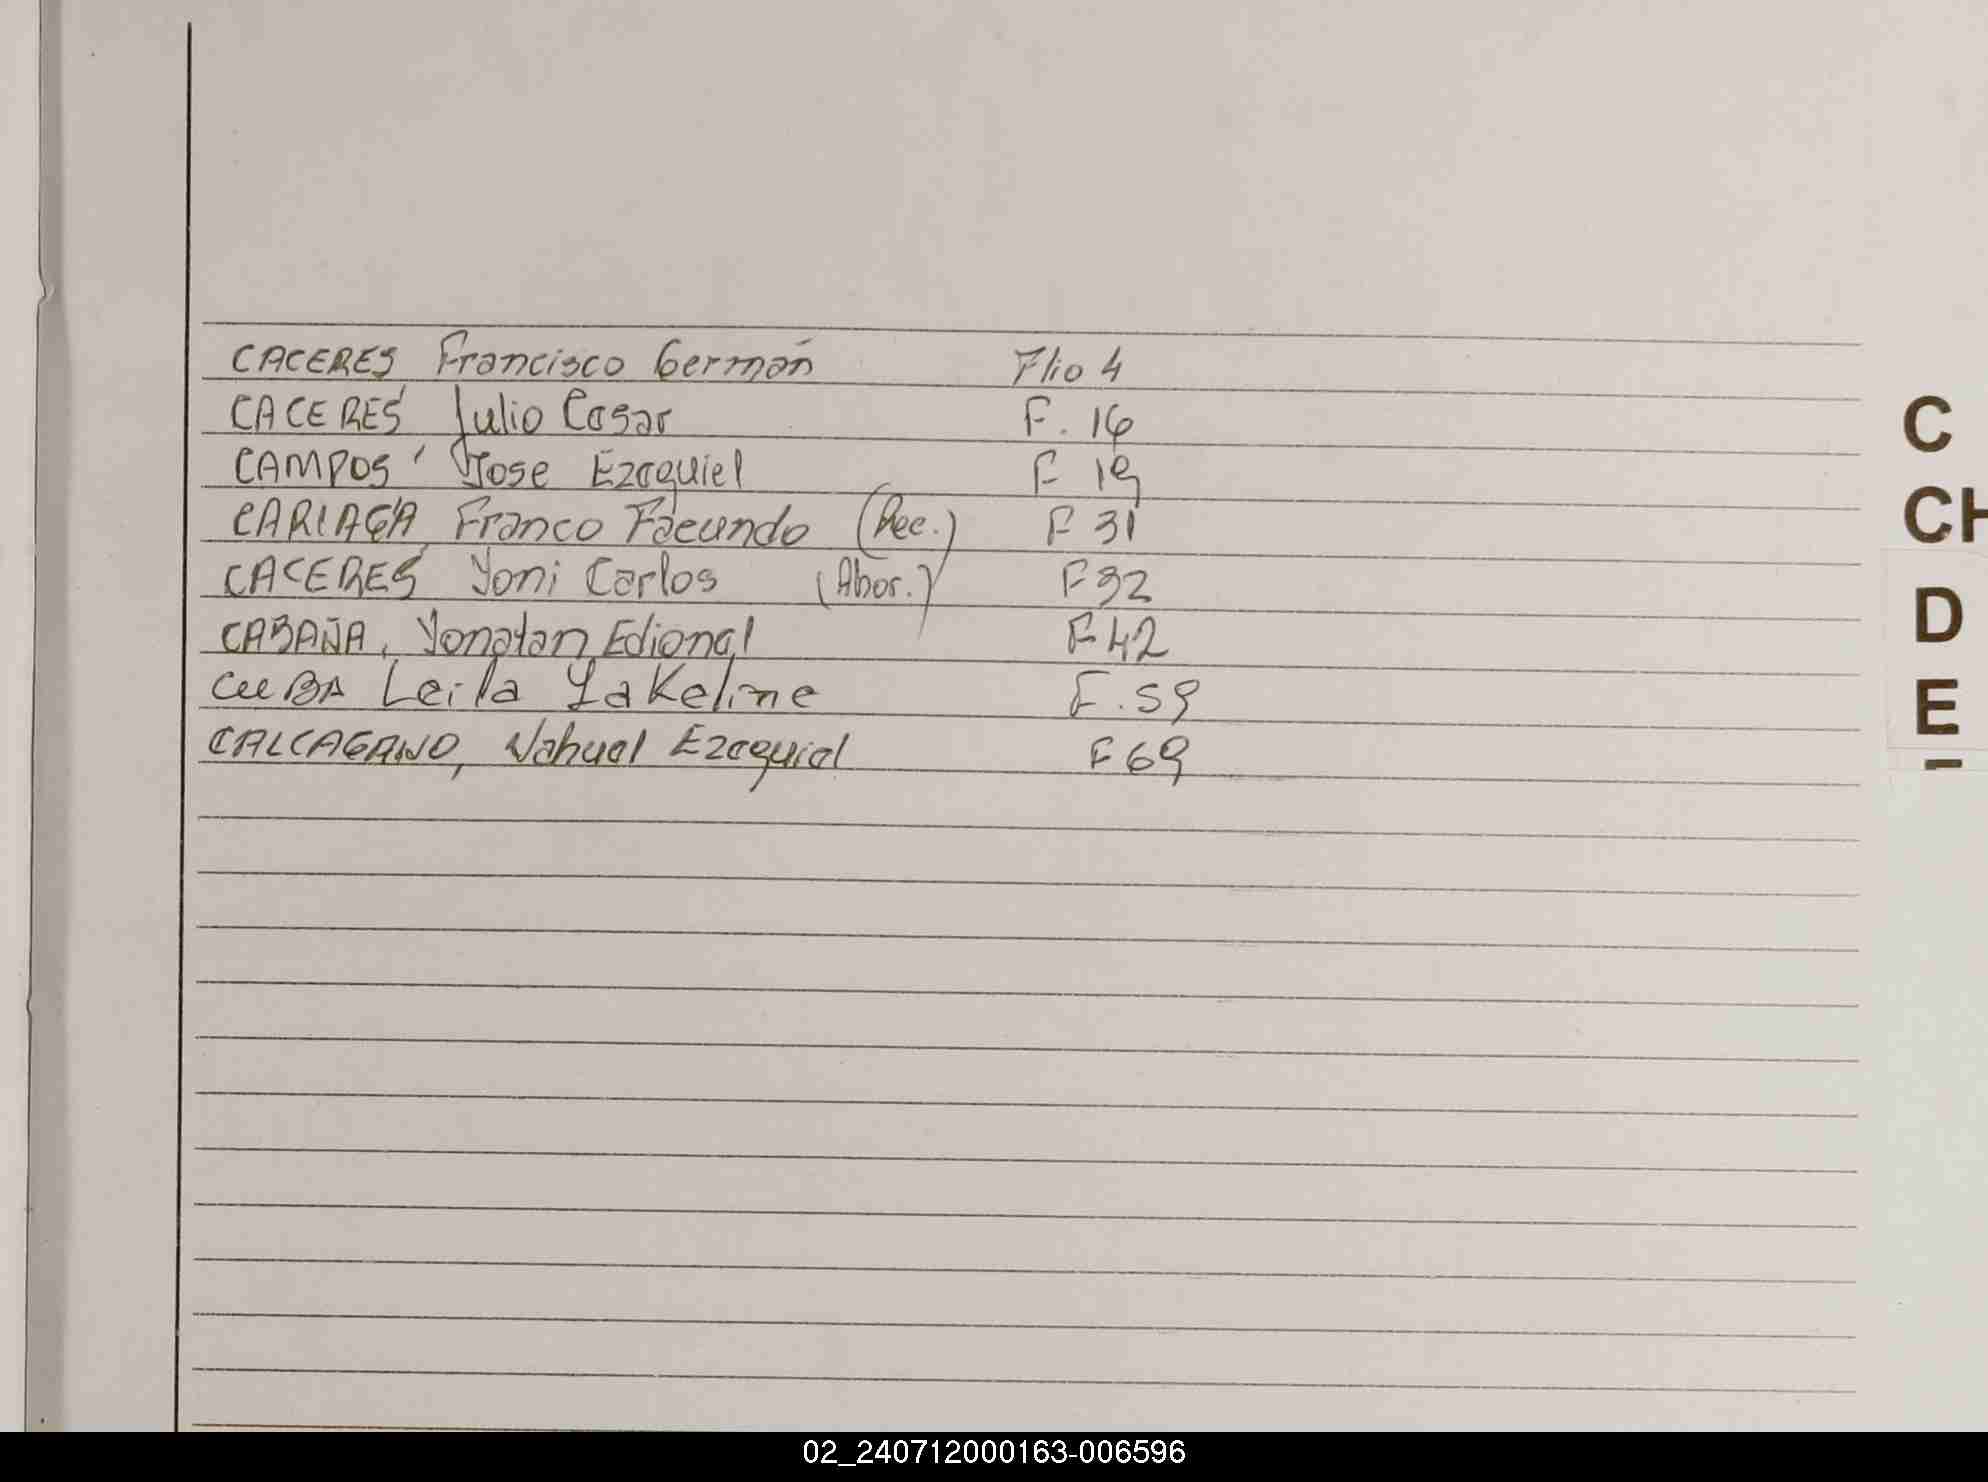 CACERES Francisco Germán Flio 4
CACERES Julio Cesar F. 16
CAMPOS, Jose Ezequiel F 19
CARIAGA, Franco Facundo (Rec.) F 31
CACERES Yoni Carlos (Abor.) F 32
CABAÑA, Yonatan Edional F 42
CUBA Leila Yakeline F. 59
CALCAGANO, Nahuel Ezequiel F 69
C
CH
D
E
02_240712000163-006596